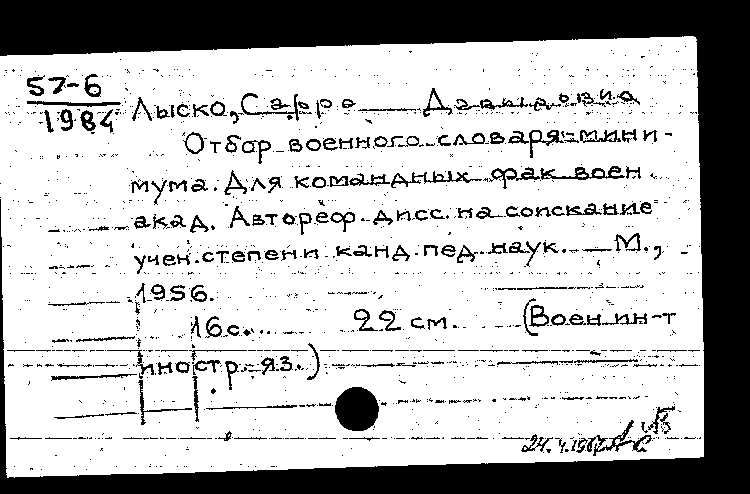 57-6
1984
Лыско, Сарра Давыдовна
Отбор военного словаря-мини-
мума. Для командных фак. воен.
акад. Автореф. дисс. на соискание
учен. степени канд. пед. наук. М.,
1956.
16 с. 22 см. (Воен. ин-т
иностр. яз.)